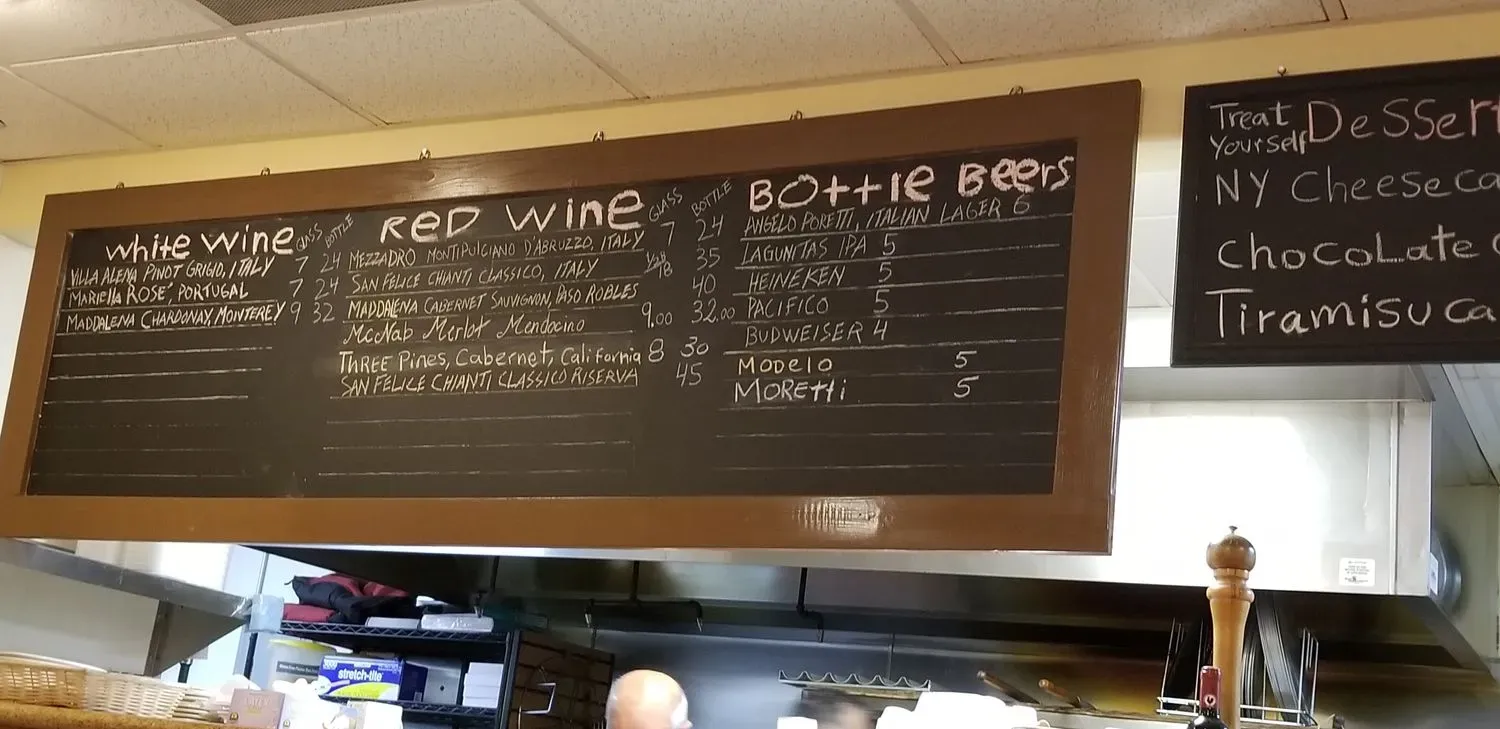 White Wine GLASS BOTTLE
VILLA ALENA PINOT GRIGIO, ITALY 7 24
MARIELLA ROSE', PORTUGAL 7 24
MADDALENA CHARDONAY, MONTEREY 9 32
RED WINE GLASS BOTTLE
MEZZADRO MONTIPULCIANO D'ABRUZZO, ITALY 7 24
SAN FELICE CHIANTI CLASSICO, ITALY 18 35
MADDALENA CABERNET SAUVIGNON, PASO ROBLES 40
McNab Merlot Mendocino 9.00 32.00
THREE Pines, Cabernet, California 8 30
SAN FELICE CHIANTI CLASSICO RISERVA 45
BOttlE BEErs
ANGELO PORETTI, ITALIAN LAGER 6
LAGUNITAS IPA 5
HEINEKEN 5
PACIFICO 5
BUDWEISER 4
MODELO 5
MOREtti 5
Treat
Yourself DeSSert
NY Cheeseca
ChocoLate
Tiramisu Ca
stretch-tite